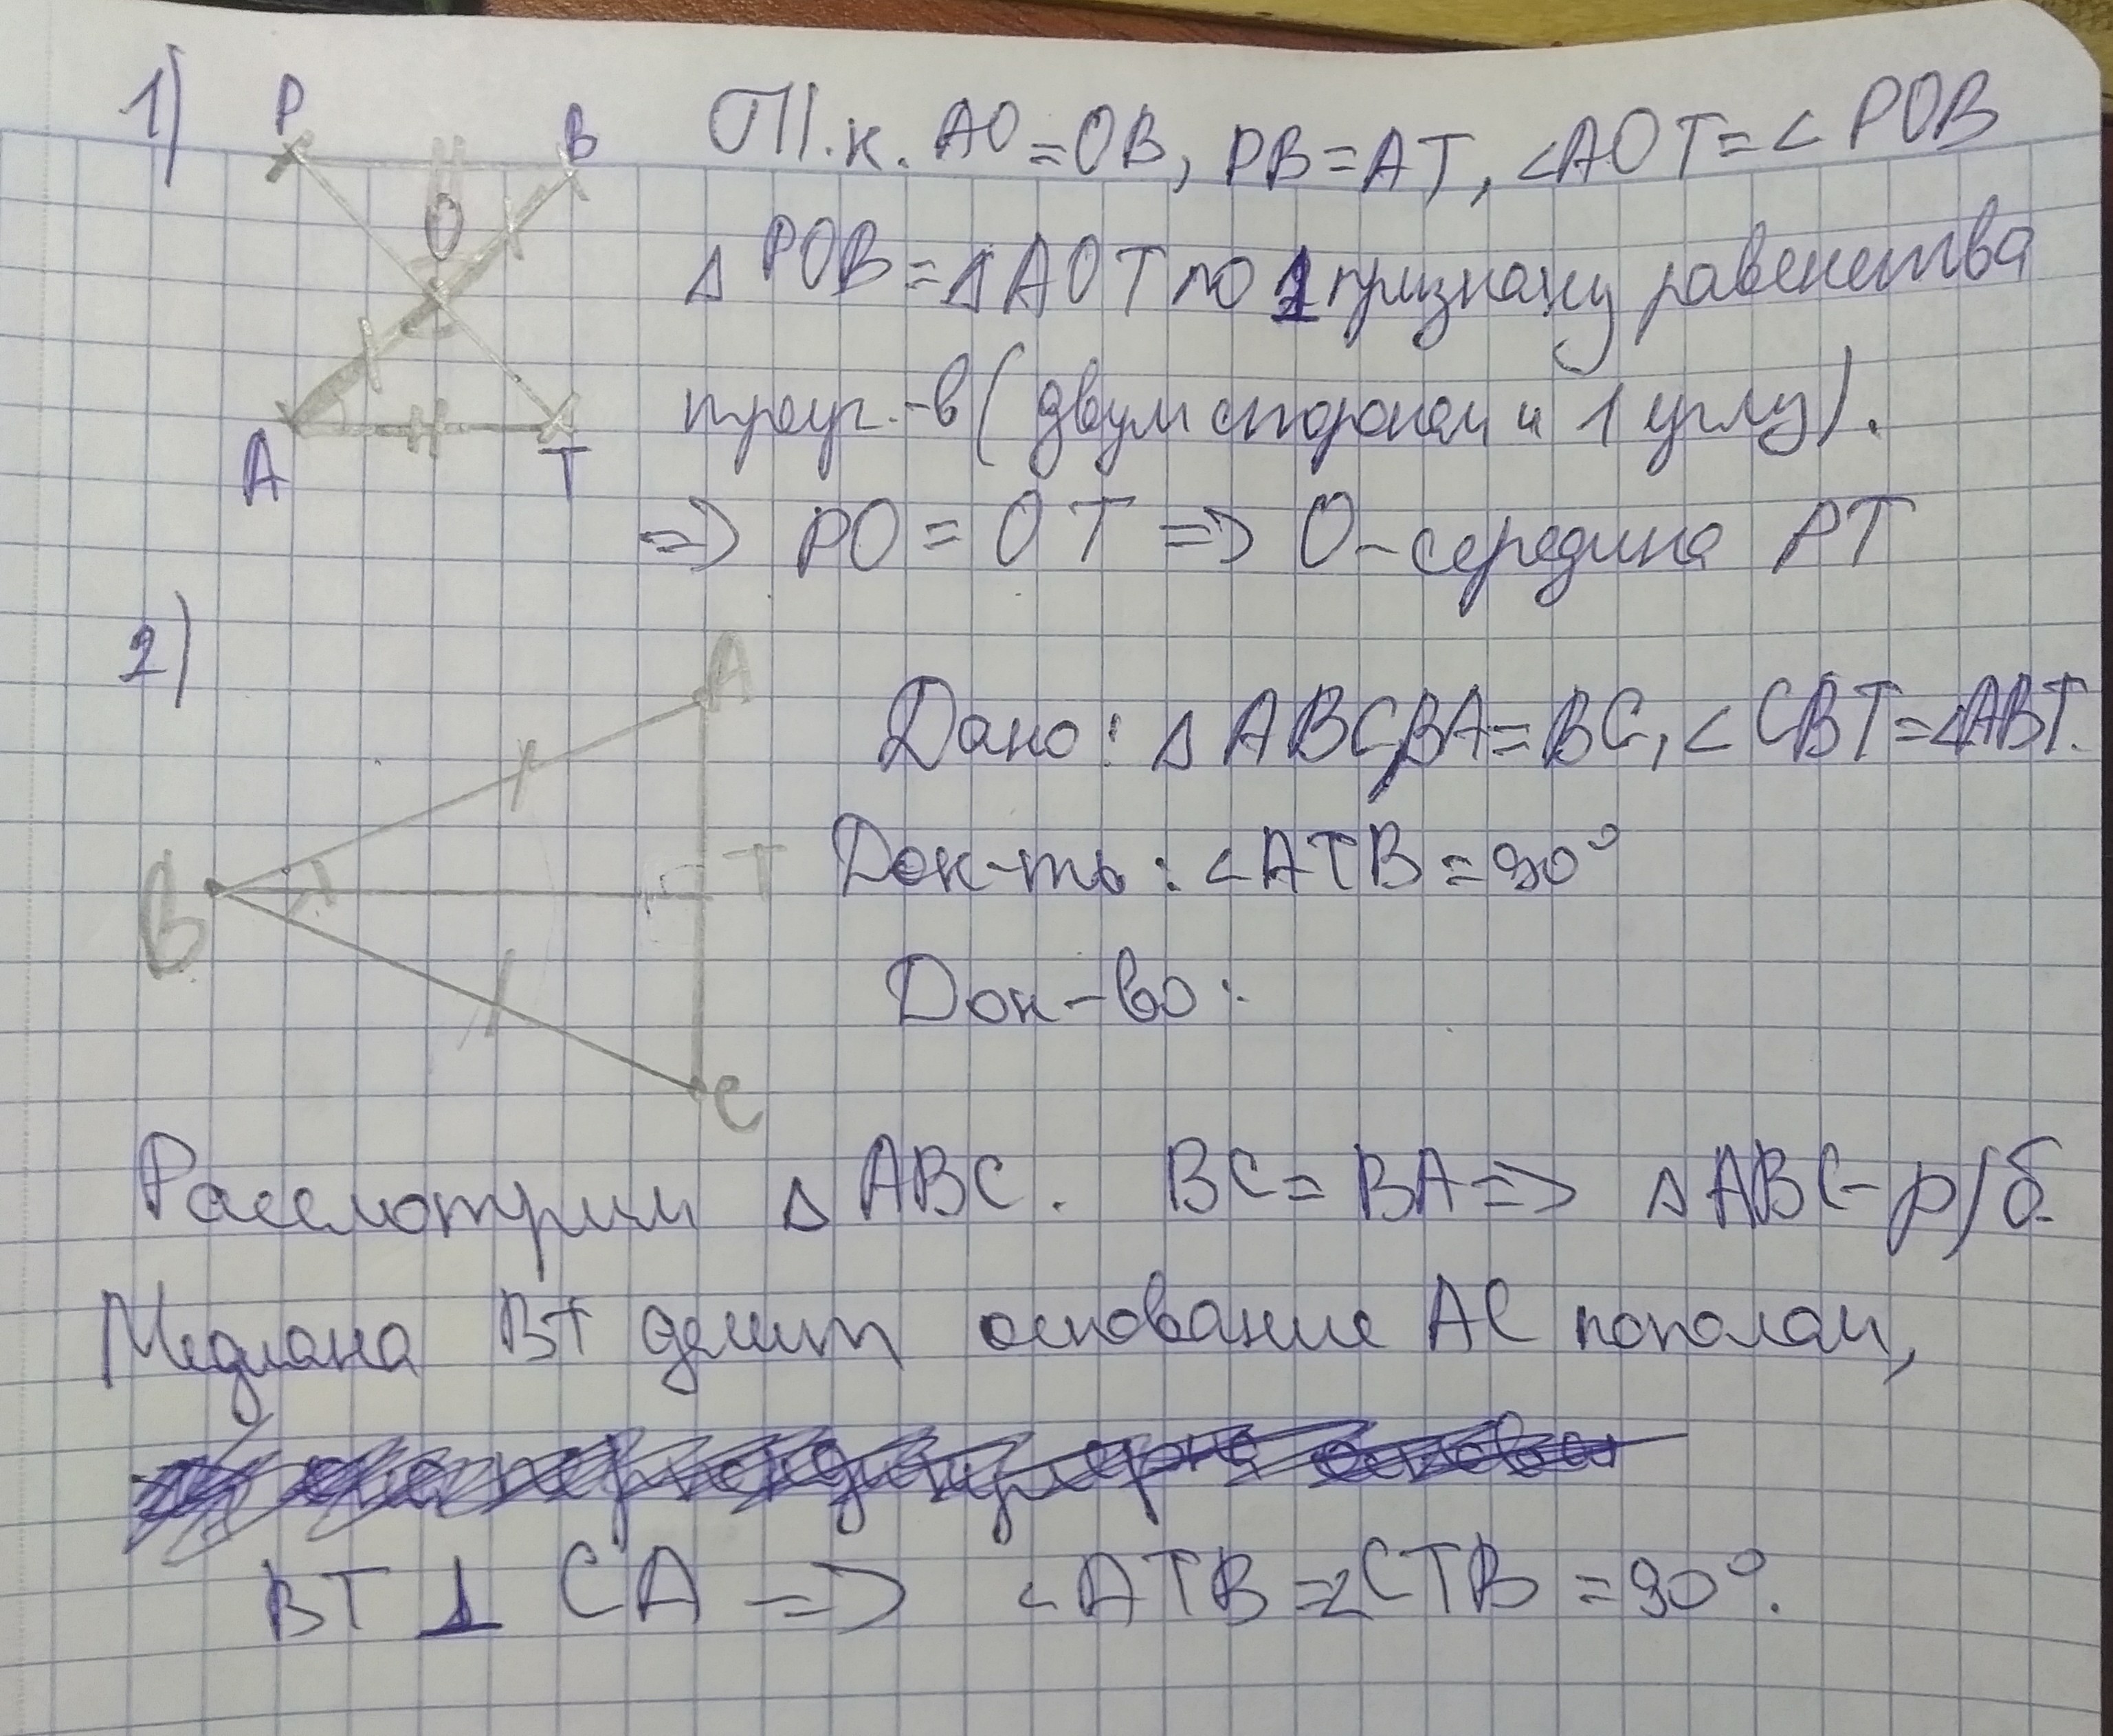 1)
P
B
O
A
T
Т.к. AO=OB, PB=AT, ∠AOT=∠POB
Δ POB=ΔAOT по 1 признаку равенства
треуг.-в (двум сторонам и 1 углу).
=> PO = OT => O-середина PT
2)
A
B
T
C
Дано: Δ ABC, BA=BC, ∠CBT=∠ABT.
Док-ть: ∠ATB=90°
Док-во:
Рассмотрим Δ ABC. BC=BA=> ΔABC-р/б.
Медиана BT делит основание AC пополам,
BT ⊥ CA => ∠ATB=∠CTB=90°.